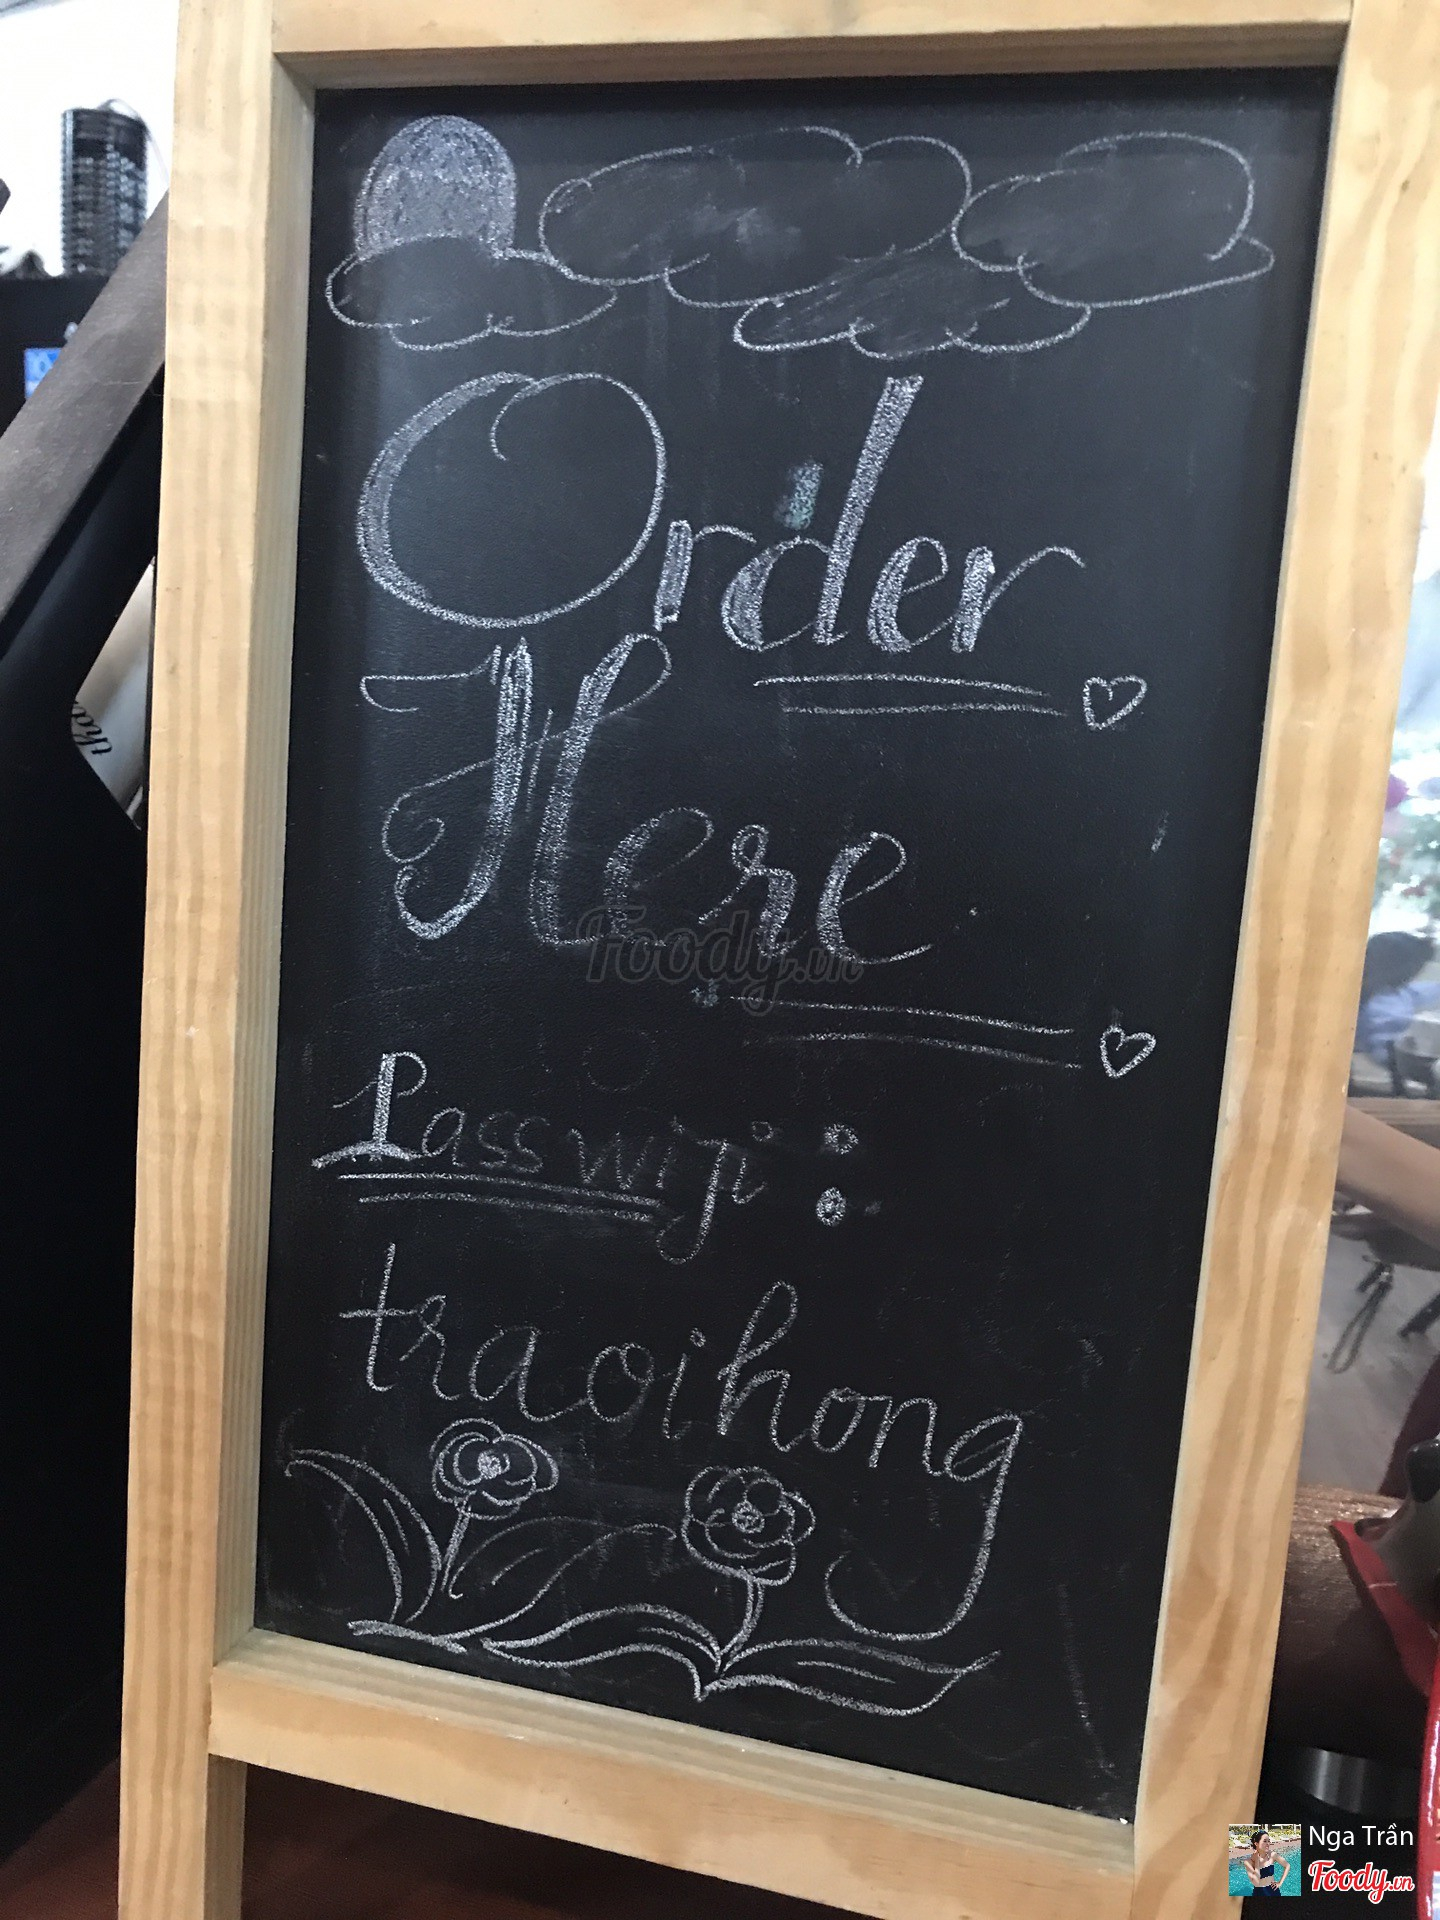 Order
Here
Pass wifi :
traoihong
Foody.vn
Nga Trần
Foody.vn